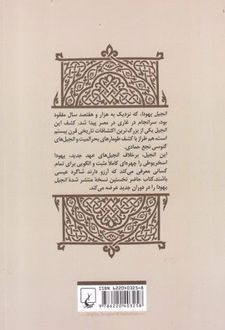 انجیل یهودا، که نزدیک به هزار و هفتصد سال مفقود
بود، سرانجام در غاری در مصر پیدا شد. کشف این
انجیل یکی از بزرگ‌ترین اکتشافات تاریخی قرن بیستم
است، هم‌طراز با کشف طومارهای بحرالمیت و انجیل‌های
گنوسی نجع حمادی.
این انجیل، برخلاف انجیل‌های عهد جدید، یهودا
اسخریوطی را چهره‌ای کاملاً مثبت و الگویی برای تمام
کسانی معرفی می‌کند که آرزو دارند شاگرد عیسی
باشند. کتاب حاضر نخستین نسخهٔ منتشر شدهٔ انجیل
یهودا را در دوران جدید عرضه می‌کند.
ISBN 6220403258
9786220403258